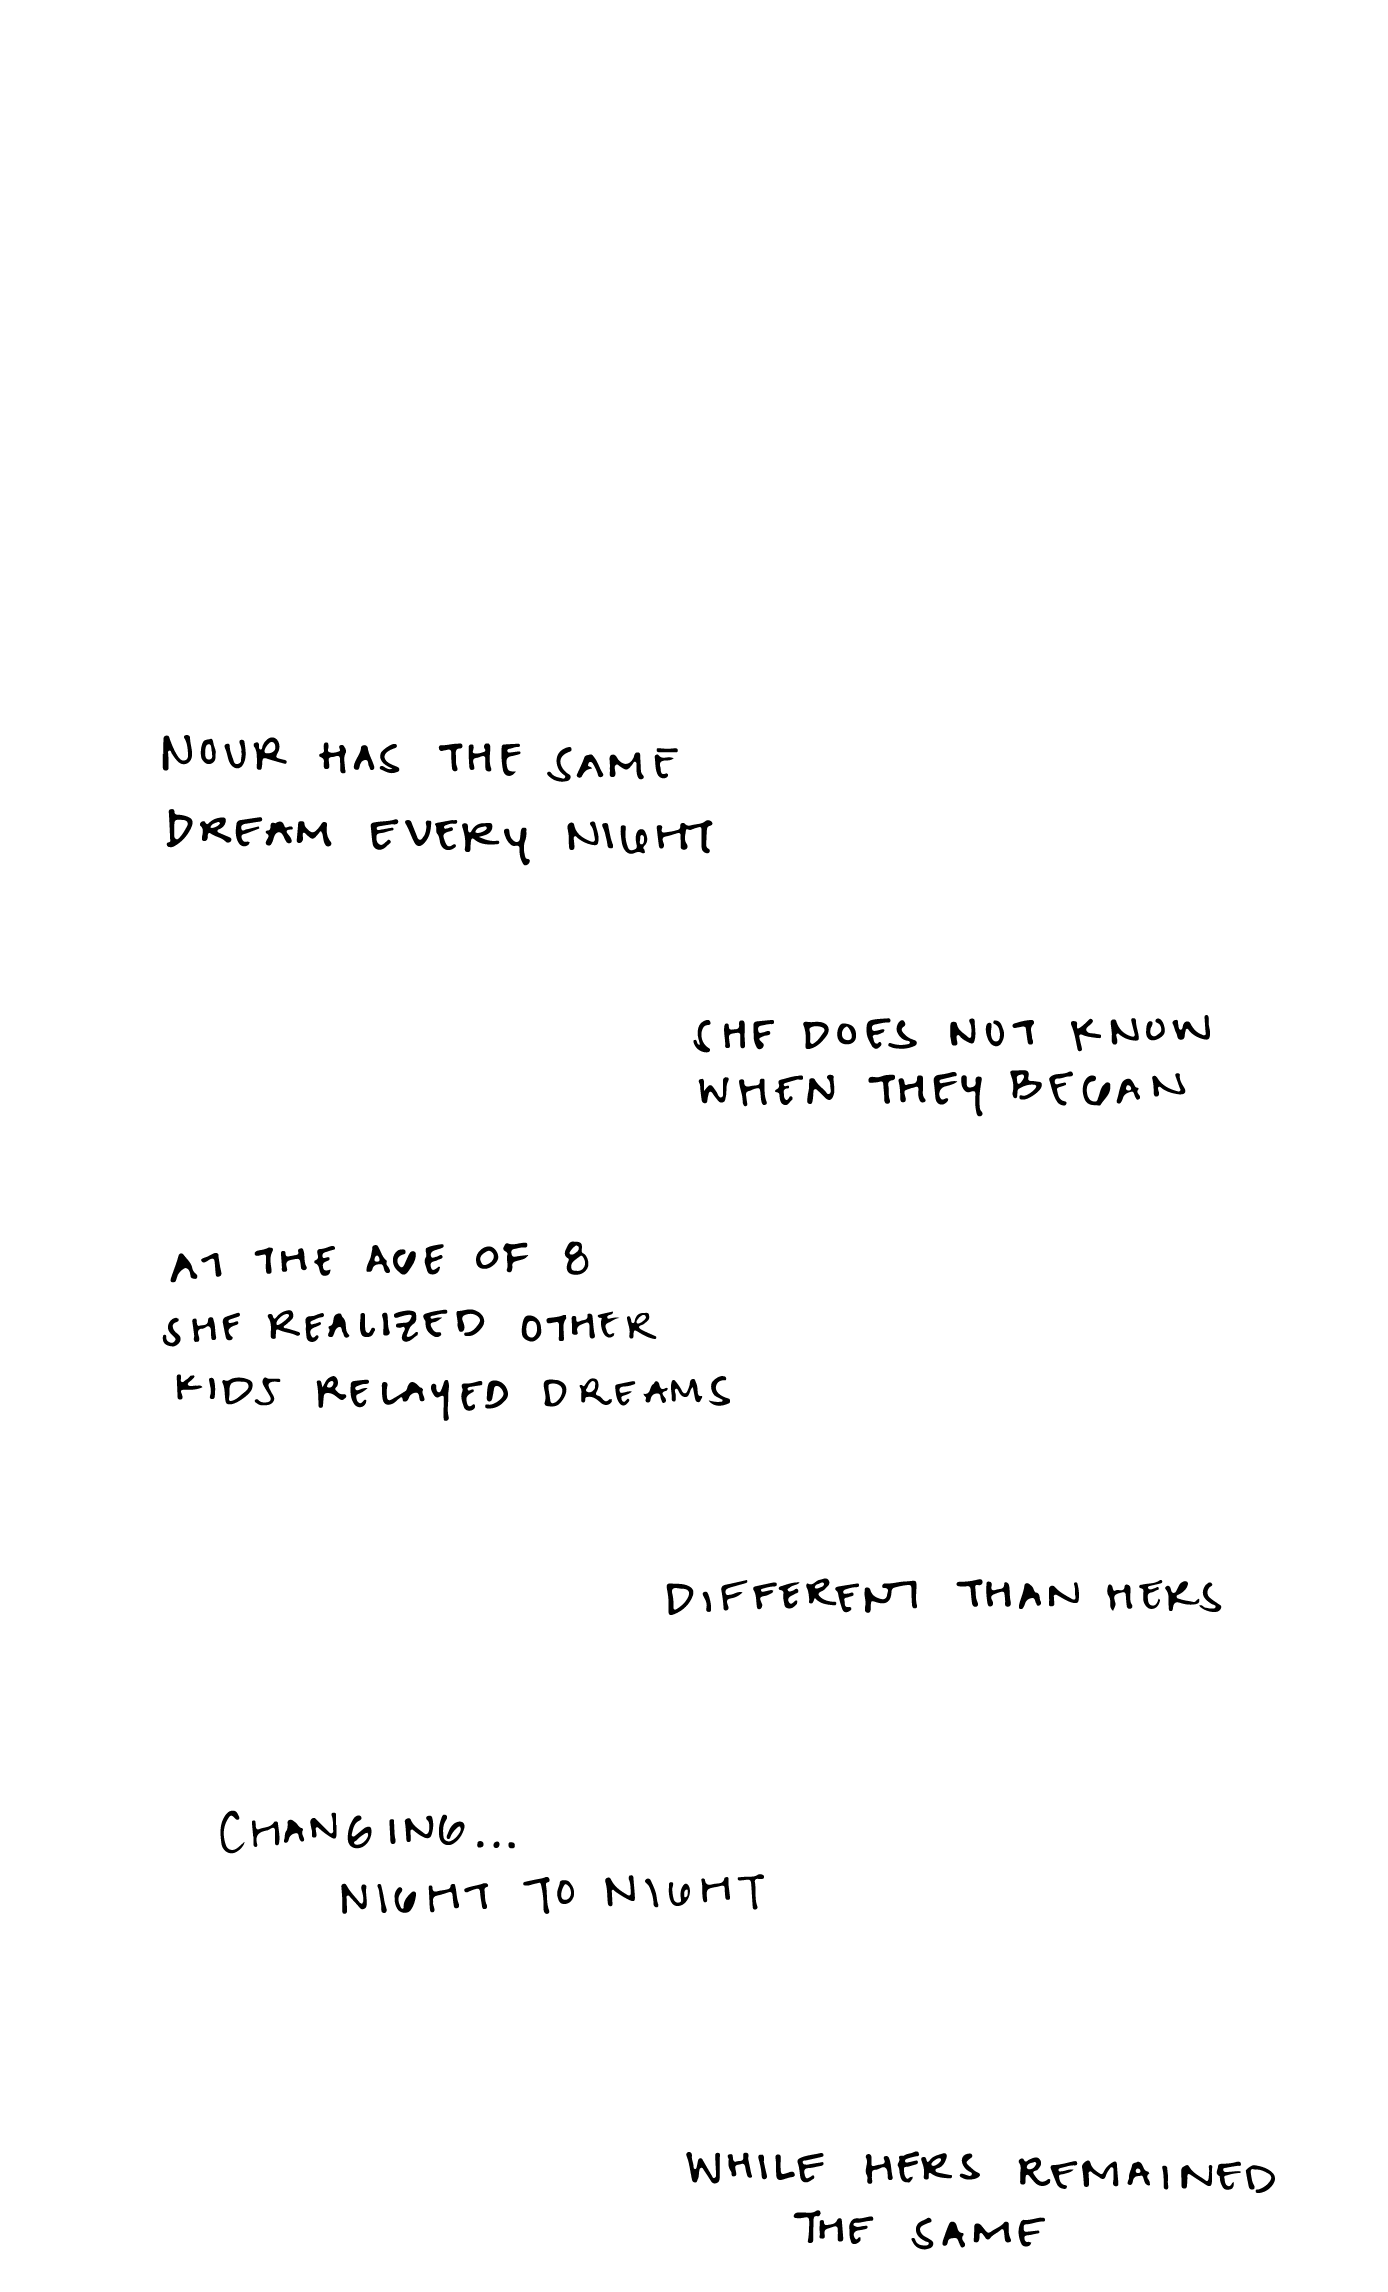 NOUR HAS THE SAME
DREAM EVERY NIGHT
SHE DOES NOT KNOW
WHEN THEY BEGAN
AT THE AGE OF 8
SHE REALIZED OTHER
KIDS RELAYED DREAMS
DIFFERENT THAN HERS
CHANGING...
NIGHT TO NIGHT
WHILE HERS REMAINED
THE SAME